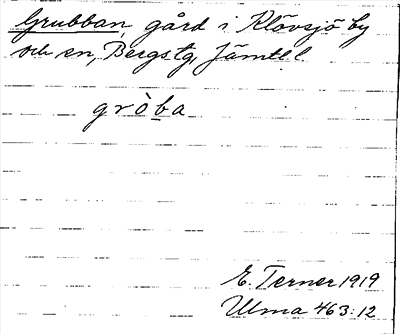 Grubban, gård i Klövsjö by
och sn, Bergs tg, Jämtl. l.
gròba
E. Terner 1919
Ulma 463:12